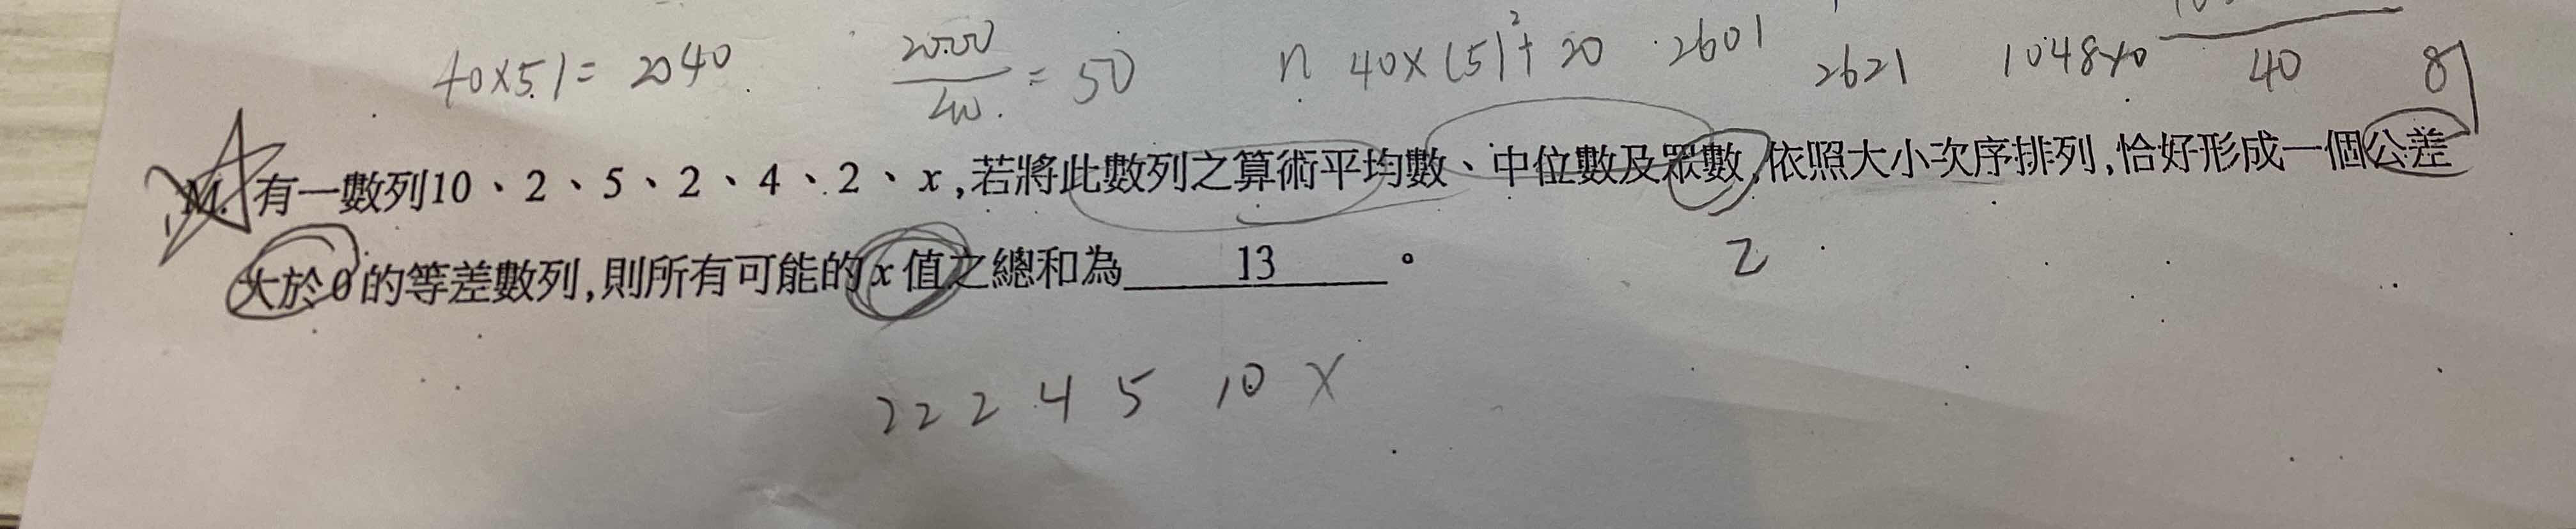 40×51=2040 2000/40=50 n 40×(51²+20 2601 2621 104840 40 8
M. 有一數列10、2、5、2、4、2、x,若將此數列之算術平均數、中位數及眾數,依照大小次序排列,恰好形成一個公差
大於0的等差數列,則所有可能的x值之總和為 13 。
2
2 2 2 4 5 10 x